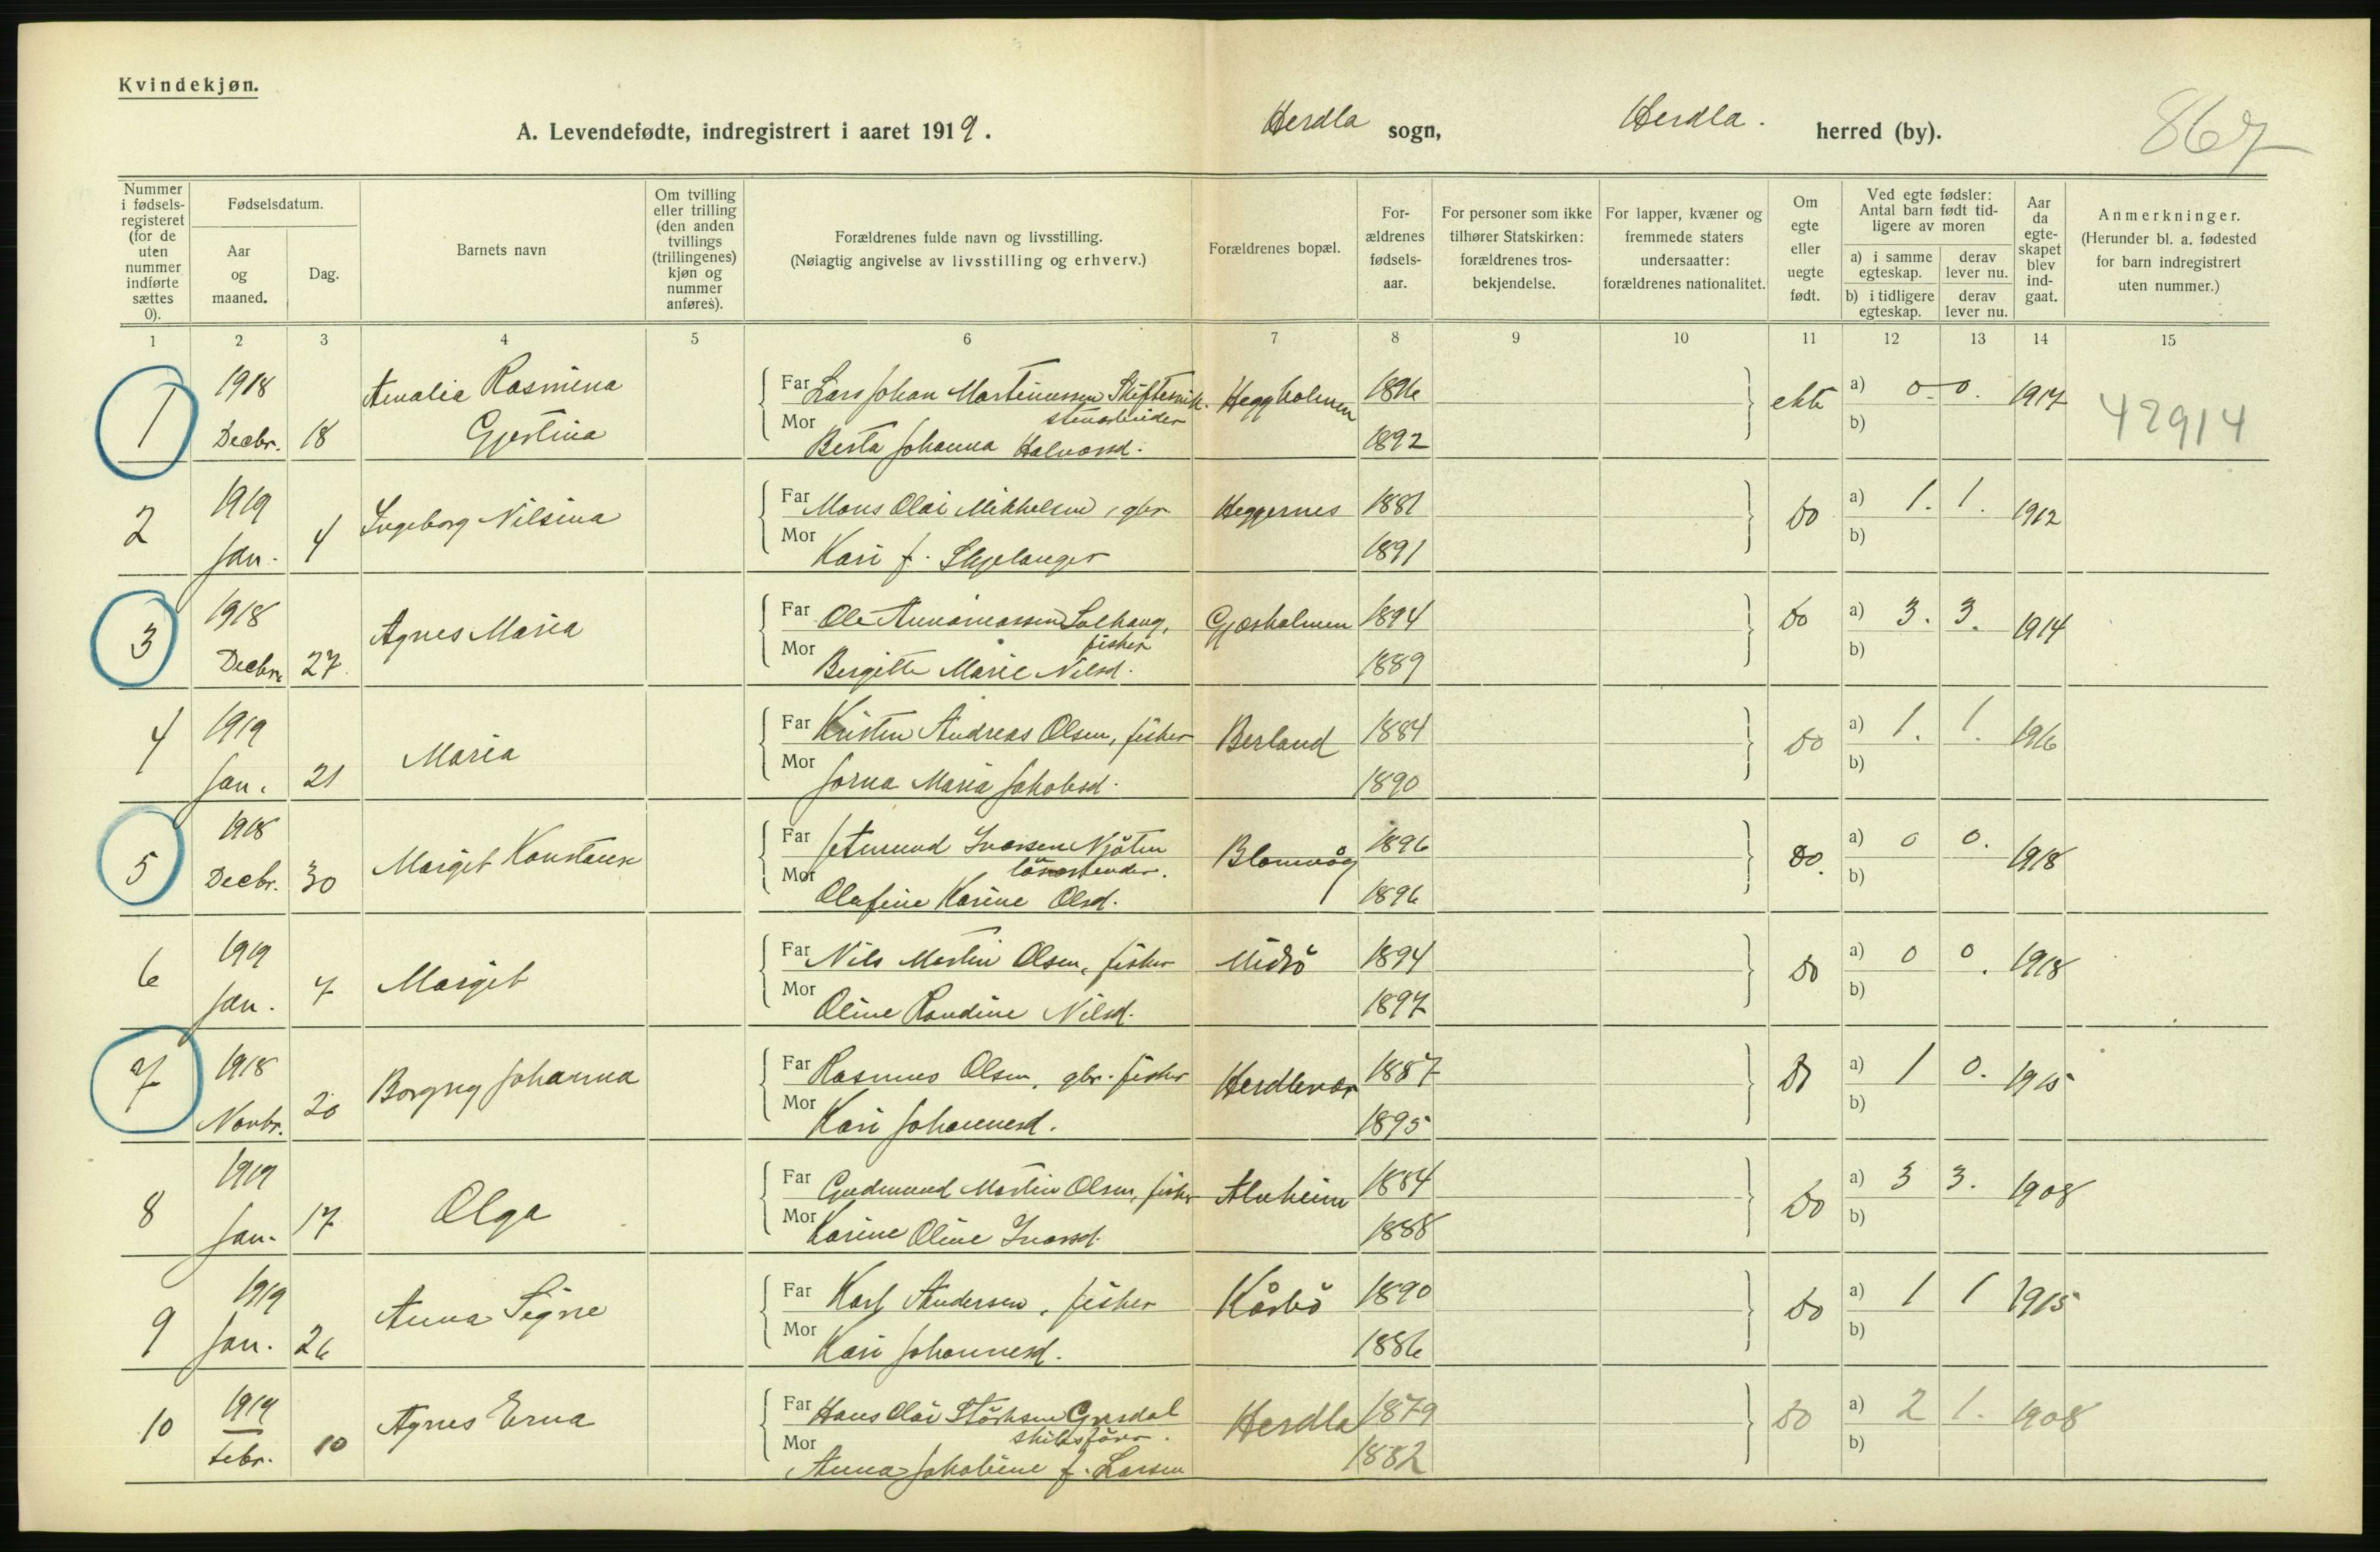 Kvindekjøn.
A. Levendefødte, indregistrert i aaret 1919.
Herdla sogn,
Herdla. herred (by).
867
Nummer i fødsels-registeret (for de uten nummer indførte sættes 0).
Fødselsdatum.
Aar og maaned.
Dag.
Barnets navn
Om tvilling eller trilling (den anden tvillings (trillingenes) kjøn og nummer anføres).
Forældrenes fulde navn og livsstilling.
(Nøiagtig angivelse av livsstilling og erhverv.)
Forældrenes bopæl.
For-ældrenes fødsels-aar.
For personer som ikke tilhører Statskirken: forældrenes tros-bekjendelse.
For lapper, kvæner og fremmede staters undersaatter: forældrenes nationalitet.
Om egte eller uegte født.
Ved egte fødsler: Antal barn født tid-ligere av moren
a) i samme egteskap.
derav lever nu.
b) i tidligere egteskap.
derav lever nu.
Aar da egte-skapet blev ind-gaat.
Anmerkninger.
(Herunder bl. a. fødested for barn indregistrert uten nummer.)
1 2 3 4 5 6 7 8 9 10 11 12 13 14 15
1 1918 Decbr. 18 Amalia Rasmina Gjertina
Far Lars Johan Martinussen Heggholmen 1896 ekte a) 0 - 0. 1917 42914
Mor Berta Johanna Halvorsd. 1892 b)
2 1919 Jan. 4 Ingeborg Nilsina
Far Mons Olai Mikkelsen, gbr. Heggernes 1881 do a) 1. 1. 1912
Mor Kari f. Skjelanger 1891 b)
3 1918 Decbr. 27 Agnes Maria
Far Ole Solhaug, fisker Gjøsholmen 1894 do a) 3. 3. 1914
Mor Bergitte Marie Nilsd. 1889 b)
4 1919 Jan. 21 Maria
Far Kristen Andreas Olsen, fisker Berland 1884 do a) 1. 1. 1916
Mor Jorna Maria Jakobsd. 1890 b)
5 1918 Decbr. 30 Margit
Far Ivarsen Blomvåg 1896 do. a) 0 0. 1918
Mor Olufine Karine Olsd. 1896 b)
6 1919 Jan. 7 Margit
Far Nils Martin Olsen, fisker Midtö 1894 do a) 0 0. 1918
Mor Oline Randine Nilsd. 1897 b)
7 1918 Novbr. 20 Borgny Johanna
Far Rasmus Olsen, gbr. fisker Herdlevær 1887 do a) 1 0. 1915
Mor Kari Johannesd. 1895 b)
8 1919 Jan. 17 Olga
Far Gudmund Martin Olsen, fisker Alvheim 1884 do a) 3 3. 1908
Mor Karine Oline Ivarsd. 1888 b)
9 1919 Jan. 26 Anna Signe
Far Karl Andersen, fisker Kårbö 1890 do a) 1 1 1915
Mor Kari Johannesd. 1886 b)
10 1919 Febr. 10 Agnes Erna
Far Hans Olai Störksen skibsförer. Herdla 1879 do a) 2 1. 1908
Mor Anna Jakobine f. Larsen 1882 b)